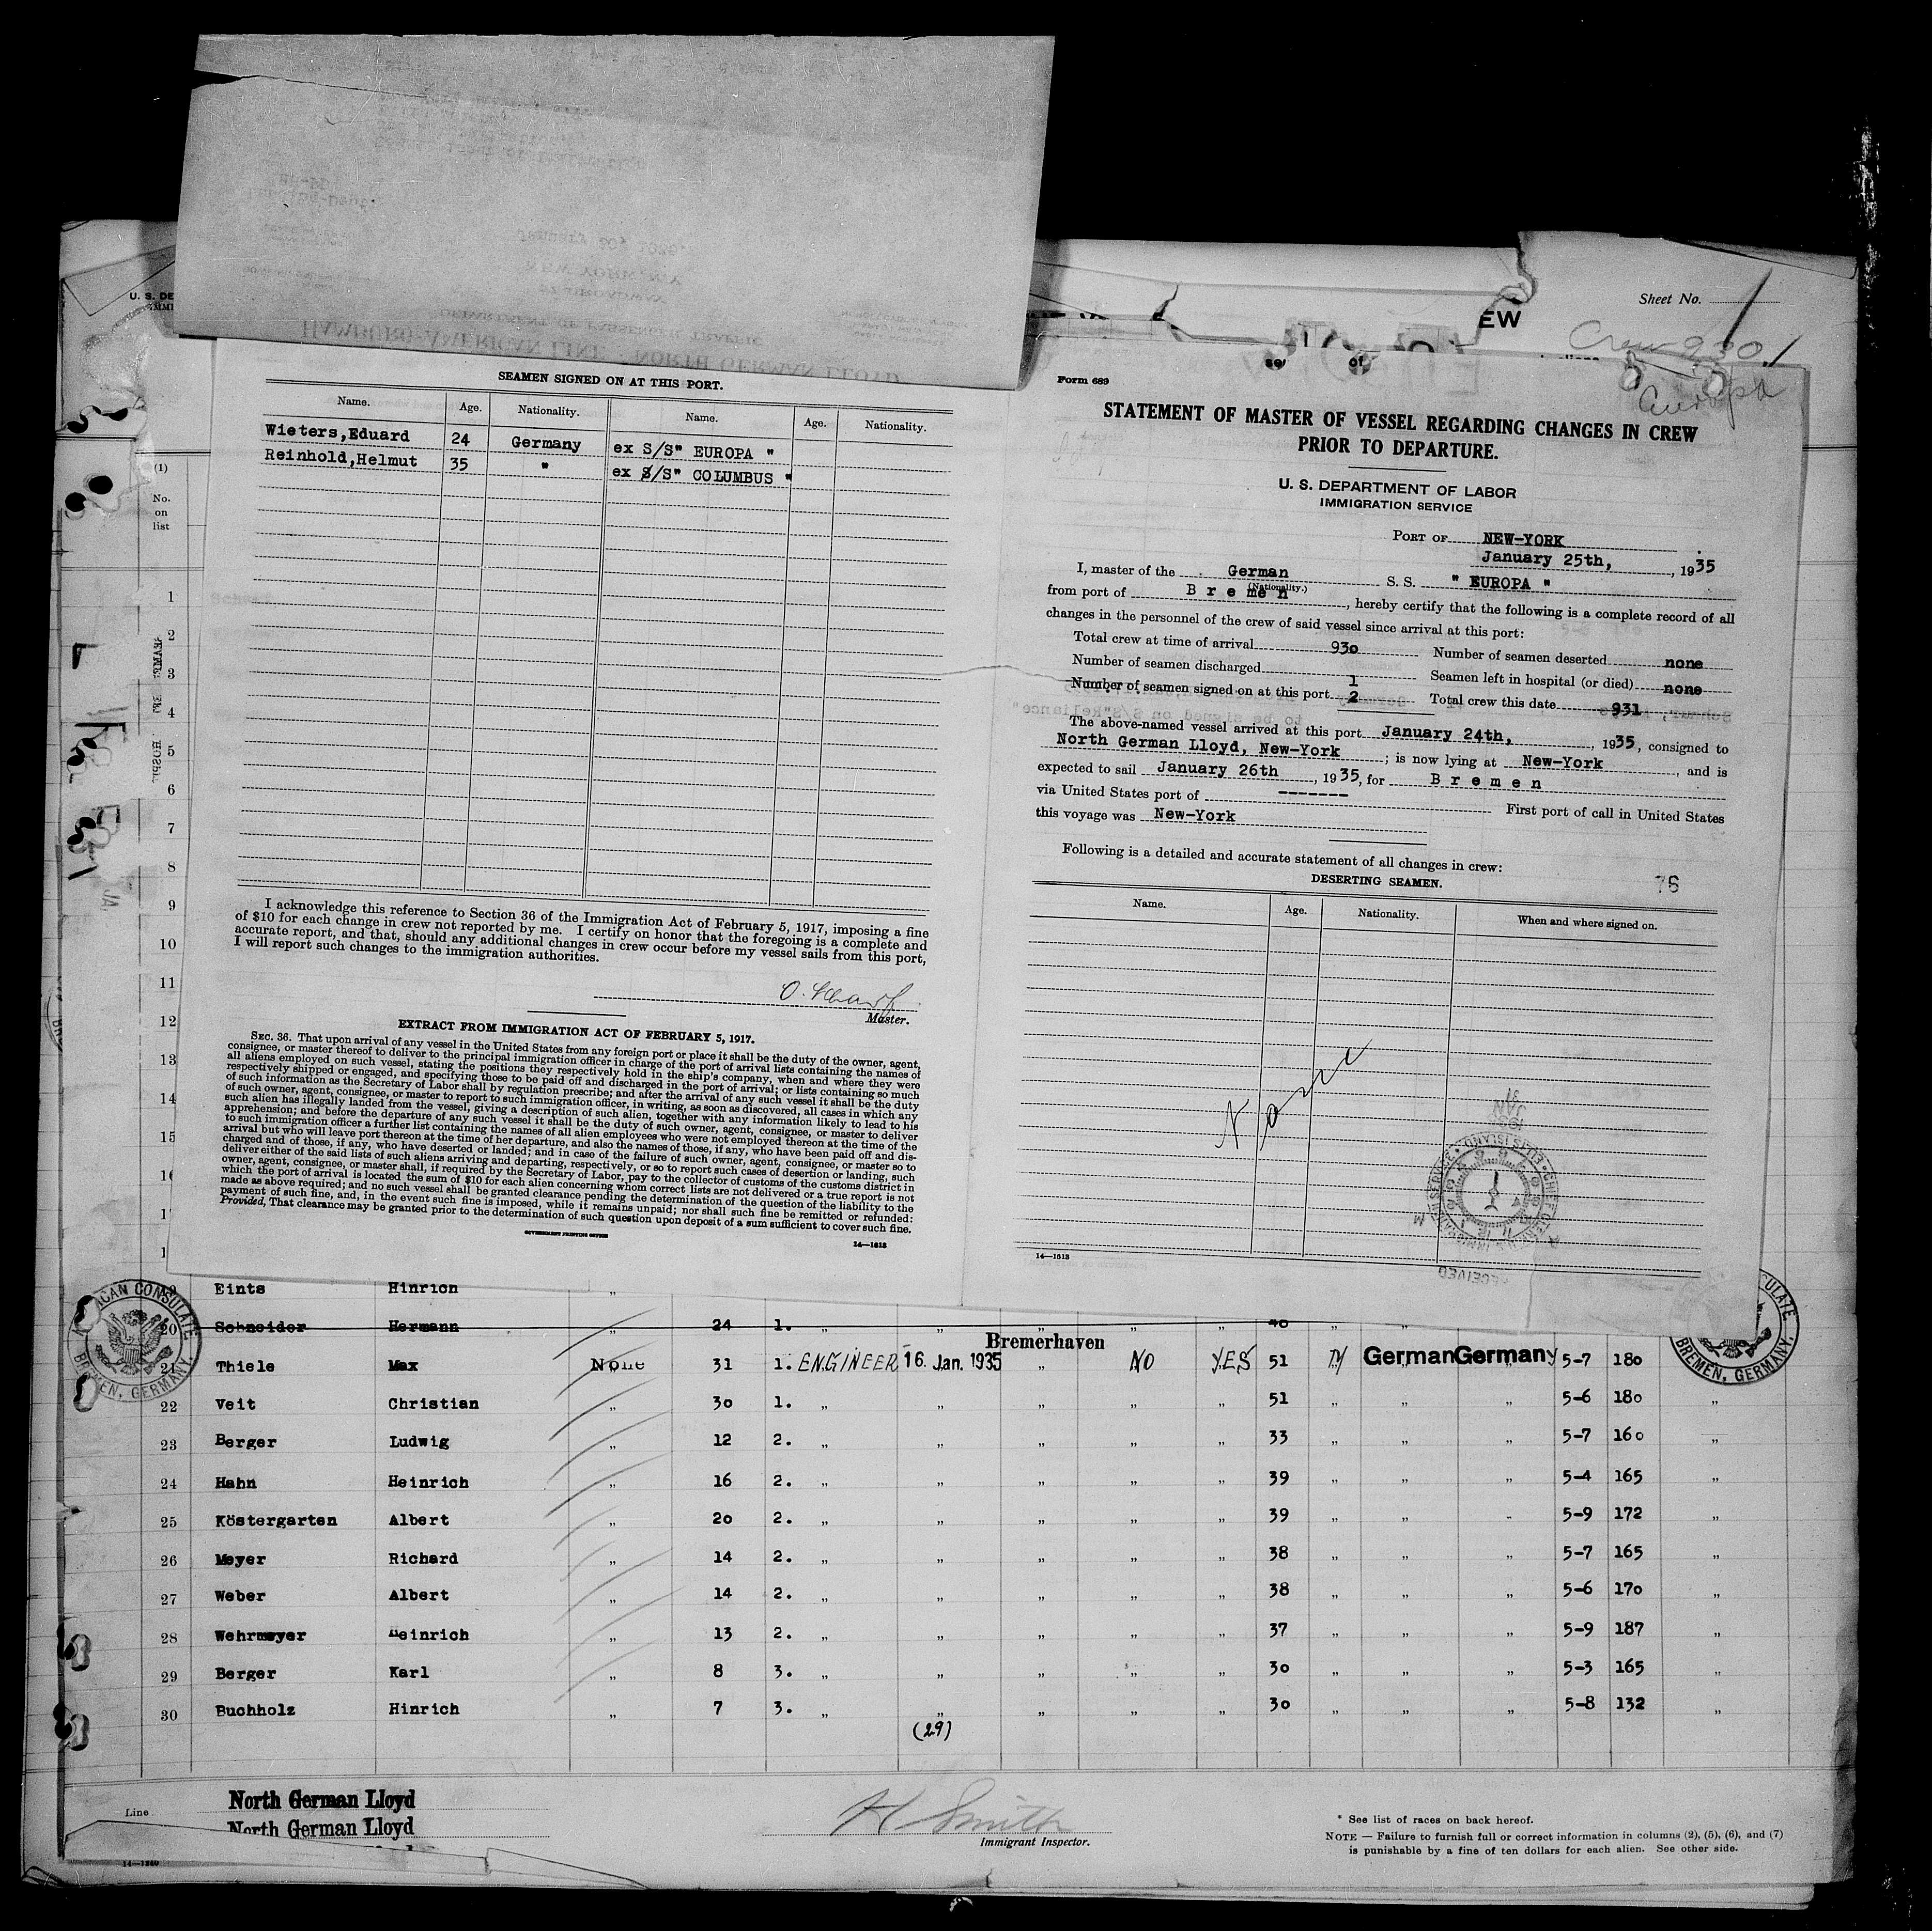 U. S. DE
Sheet No.
EW
Crew 930
Europa
SEAMEN SIGNED ON AT THIS PORT.
Name. Age. Nationality. Name. Age. Nationality.
Wieters,Eduard 24 Germany ex S/S" EUROPA "
Reinhold,Helmut 35 " ex S/S" COLUMBUS "
I acknowledge this reference to Section 36 of the Immigration Act of February 5, 1917, imposing a fine
of $10 for each change in crew not reported by me. I certify on honor that the foregoing is a complete and
accurate report, and that, should any additional changes in crew occur before my vessel sails from this port,
I will report such changes to the immigration authorities.
O. Scharf
Master.
EXTRACT FROM IMMIGRATION ACT OF FEBRUARY 5, 1917.
SEC. 36. That upon arrival of any vessel in the United States from any foreign port or place it shall be the duty of the owner, agent,
consignee, or master thereof to deliver to the principal immigration officer in charge of the port of arrival lists containing the names of
all aliens employed on such vessel, stating the positions they respectively hold in the ship's company, when and where they were
respectively shipped or engaged, and specifying those to be paid off and discharged in the port of arrival; or lists containing so much
of such information as the Secretary of Labor shall by regulation prescribe; and after the arrival of any such vessel it shall be the duty
of such owner, agent, consignee, or master to report to such immigration officer, in writing, as soon as discovered, all cases in which any
such alien has illegally landed from the vessel, giving a description of such alien, together with any information likely to lead to his
apprehension; and before the departure of any such vessel it shall be the duty of such owner, agent, consignee, or master to deliver
to such immigration officer a further list containing the names of all alien employees who were not employed thereon at the time of the
arrival but who will leave port thereon at the time of her departure, and also the names of those, if any, who have been paid off and dis-
charged and of those, if any, who have deserted or landed; and in case of the failure of such owner, agent, consignee, or master so to
deliver either of the said lists of such aliens arriving and departing, respectively, or so to report such cases of desertion or landing, such
owner, agent, consignee, or master shall, if required by the Secretary of Labor, pay to the collector of customs of the customs district in
which the port of arrival is located the sum of $10 for each alien concerning whom correct lists are not delivered or a true report is not
made as above required; and no such vessel shall be granted clearance pending the determination of the question of the liability to the
payment of such fine, and, in the event such fine is imposed, while it remains unpaid; nor shall such fine be remitted or refunded:
Provided, That clearance may be granted prior to the determination of such question upon deposit of a sum sufficient to cover such fine.
GOVERNMENT PRINTING OFFICE
14—1613
Form 689
STATEMENT OF MASTER OF VESSEL REGARDING CHANGES IN CREW
PRIOR TO DEPARTURE.
U. S. DEPARTMENT OF LABOR
IMMIGRATION SERVICE
PORT OF NEW-YORK
January 25th, , 1935
I, master of the German S. S. " EUROPA "
(Nationality.)
from port of Bremen, hereby certify that the following is a complete record of all
changes in the personnel of the crew of said vessel since arrival at this port:
Total crew at time of arrival 930 Number of seamen deserted none
Number of seamen discharged 1 Seamen left in hospital (or died) none
Number of seamen signed on at this port 2 Total crew this date 931
The above-named vessel arrived at this port January 24th, , 1935, consigned to
North German Lloyd, New-York ; is now lying at New-York , and is
expected to sail January 26th , 1935, for Bremen
via United States port of ------- First port of call in United States
this voyage was New-York
Following is a detailed and accurate statement of all changes in crew:
DESERTING SEAMEN.
76
Name. Age. Nationality. When and where signed on.
None
14—1613
(1)
No.
on
list
1
2
3
4
5
6
7
8
9
10
11
12
13
14
15
Eints Hinrich "
20 Schneider Hermann " 24 1. " " " " " 40 " "
Bremerhaven
21 Thiele Max None 31 1. ENGINEER 16 Jan. 1935 " NO YES 51 M German German 5-7 180
22 Veit Christian " 30 1. " " " " " 51 " " " 5-6 180 "
23 Berger Ludwig " 12 2. " " " " " 33 " " " 5-7 160 "
24 Hahn Heinrich " 16 2. " " " " " 39 " " " 5-4 165 "
25 Köstergarten Albert " 20 2. " " " " " 39 " " " 5-9 172 "
26 Meyer Richard " 14 2. " " " " " 38 " " " 5-7 165 "
27 Weber Albert " 14 2. " " " " " 38 " " " 5-6 170 "
28 Wehrmeyer Heinrich " 13 2. " " " " " 37 " " " 5-9 187 "
29 Berger Karl " 8 3. " " " " " 30 " " " 5-3 165 "
30 Buchholz Hinrich " 7 3. " " " " " 30 " " " 5-8 132 "
(29)
Line North German Lloyd
North German Lloyd
H Smith
Immigrant Inspector.
* See list of races on back hereof.
NOTE — Failure to furnish full or correct information in columns (2), (5), (6), and (7)
is punishable by a fine of ten dollars for each alien. See other side.
14—1240